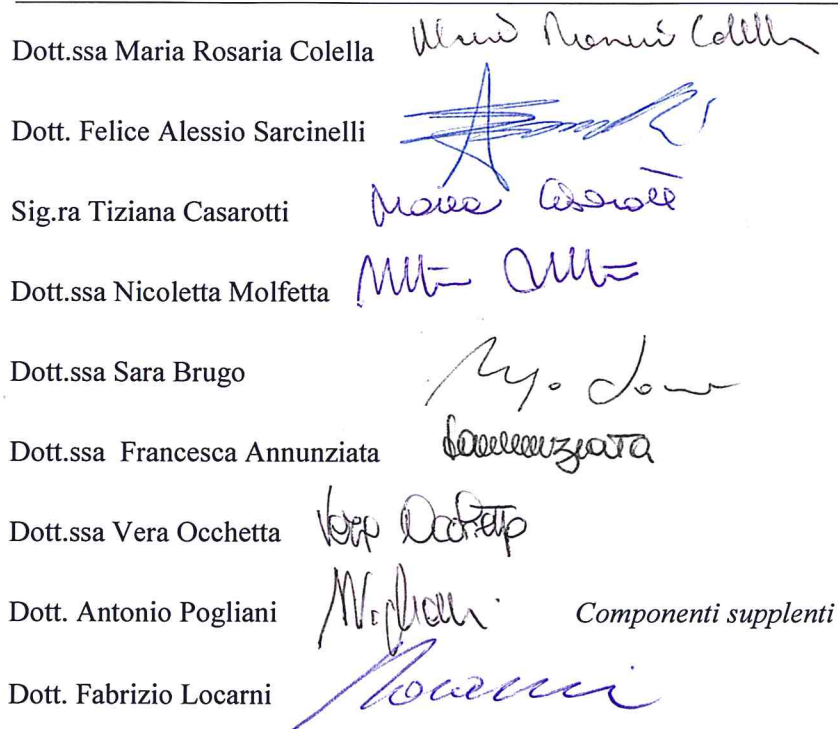 Dott.ssa Maria Rosaria Colella
Dott. Felice Alessio Sarcinelli
Sig.ra Tiziana Casarotti
Dott.ssa Nicoletta Molfetta
Dott.ssa Sara Brugo
Dott.ssa Francesca Annunziata
Dott.ssa Vera Occhetta Vera Occhetta
Dott. Antonio Pogliani Componenti supplenti
Dott. Fabrizio Locarni Locarni